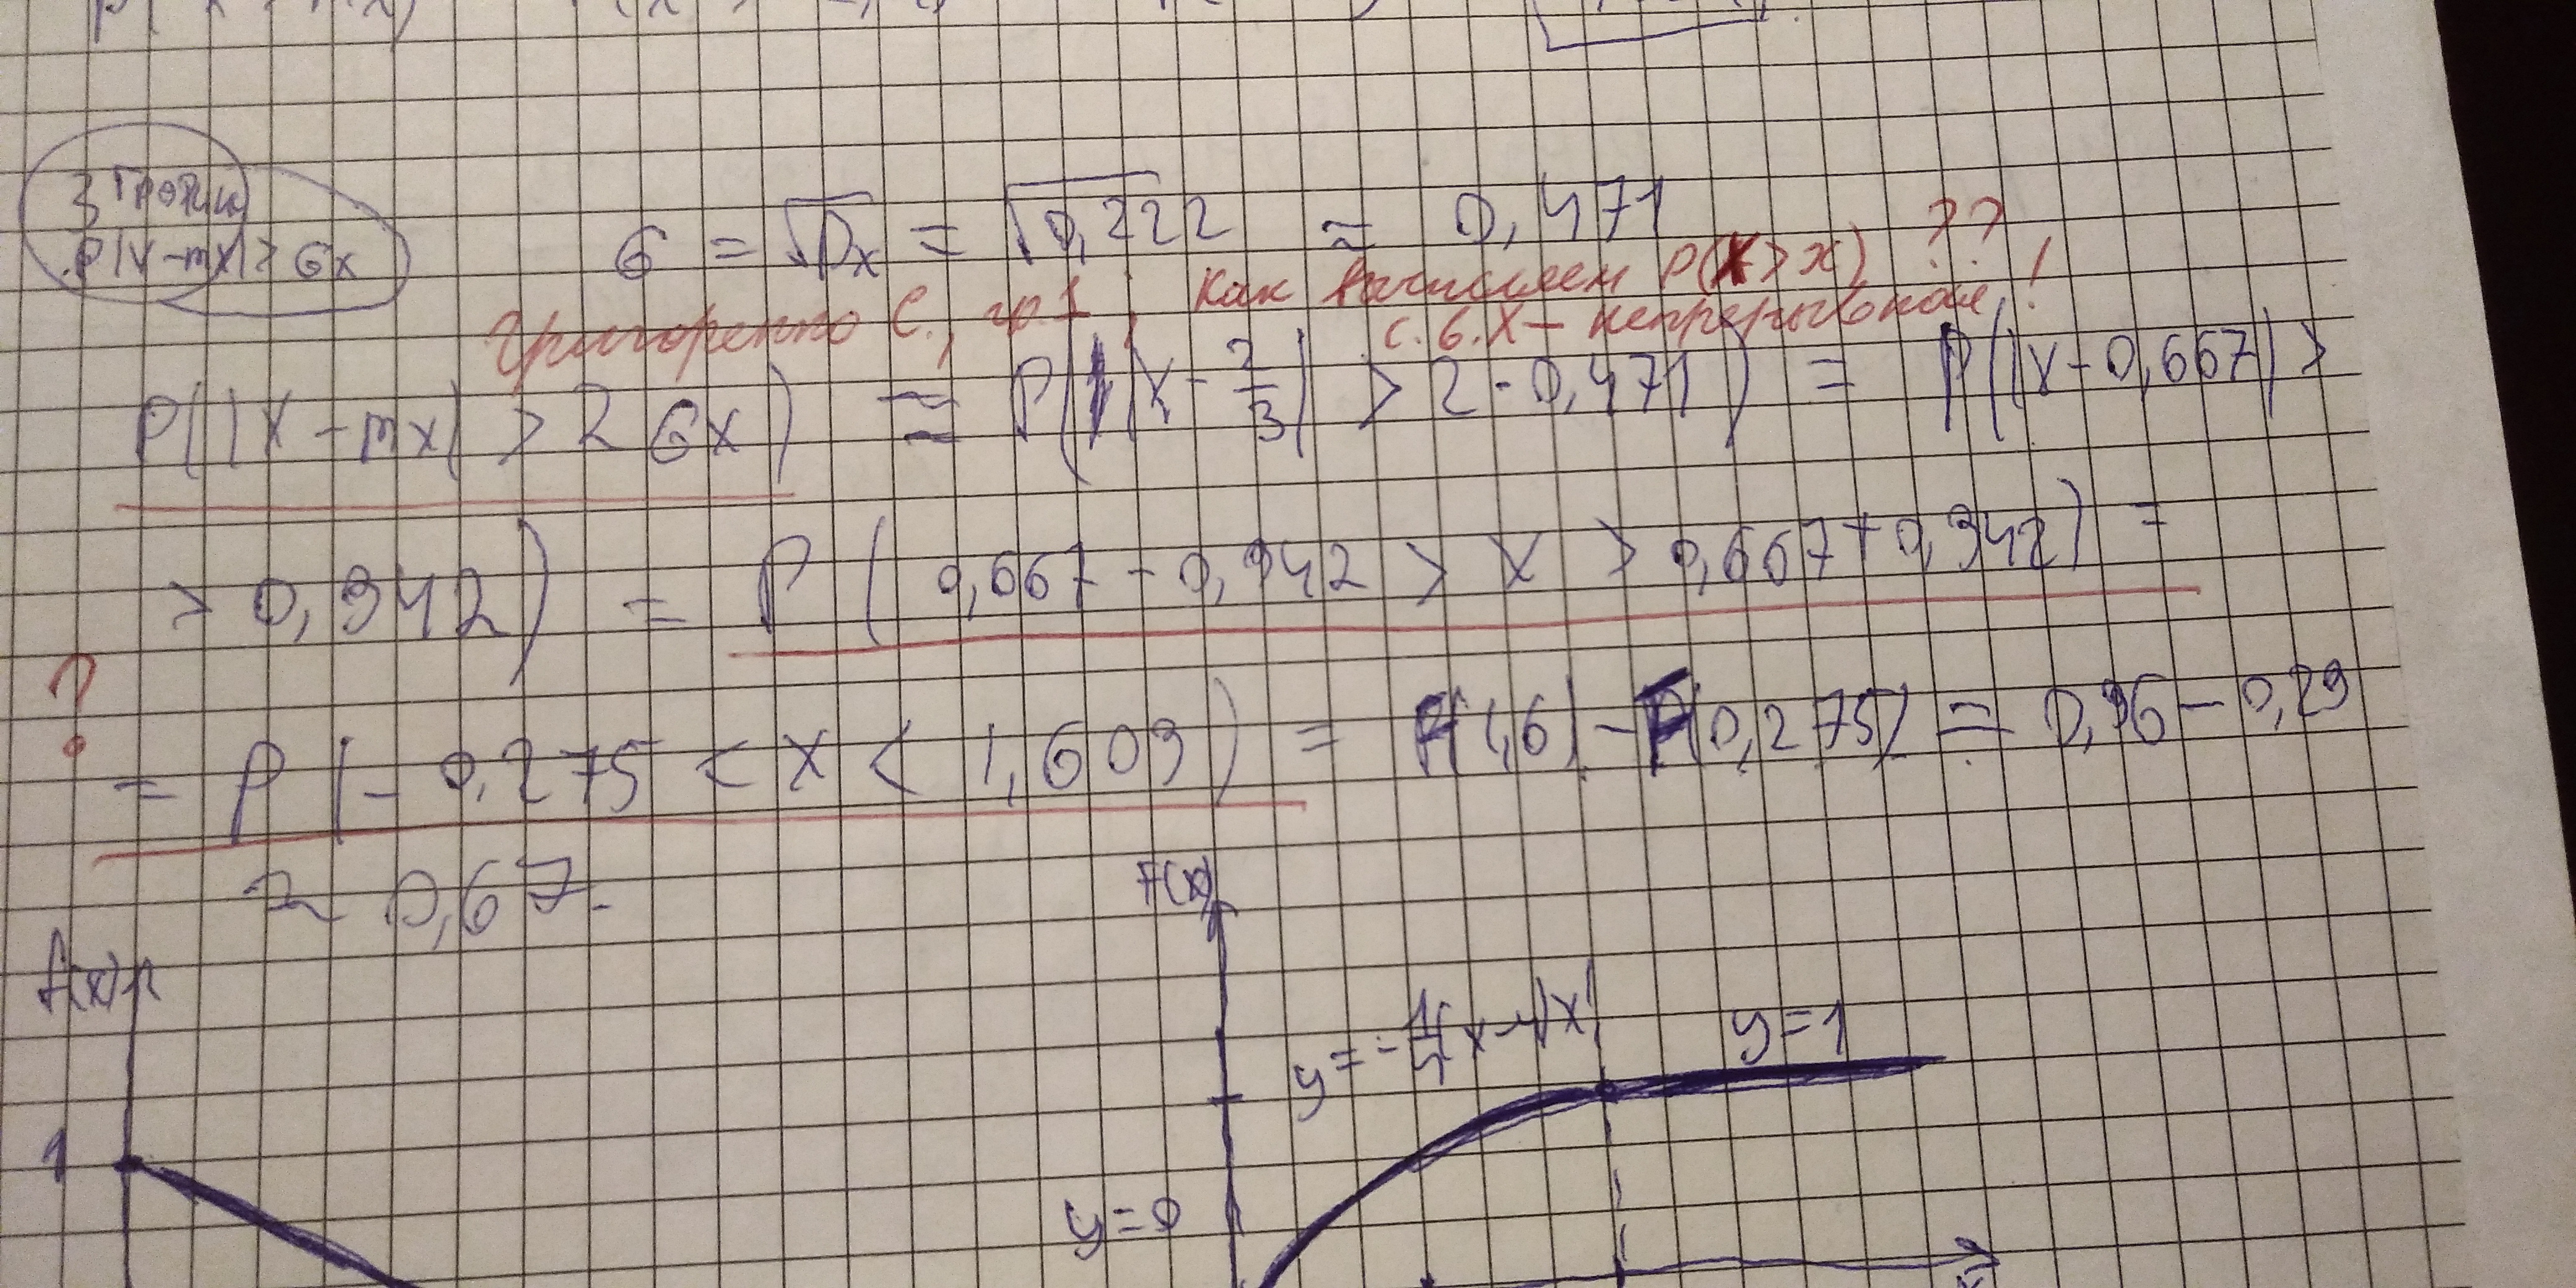 P(|X-mx|>σx
σ = √Dx = √0,222 ≈ 0,471
Григоренко С., гр. 1, как вычисляем P(X>x) ??
с.в. X – непрерывная!
P(|X-mx| > 2σx) ≈ P(|X-2/3| > 2·0,471) = P(|X-0,667| >
> 0,942) = P(0,667-0,942 > X > 0,667+0,942) =
?
= P(-0,275 < X < 1,609) = F(1,6) - F(0,275) = 0,96-0,29
≈ 0,67.
F(x)
f(x)
y = -1/4(x-4)x
y=1
1
y=0
x